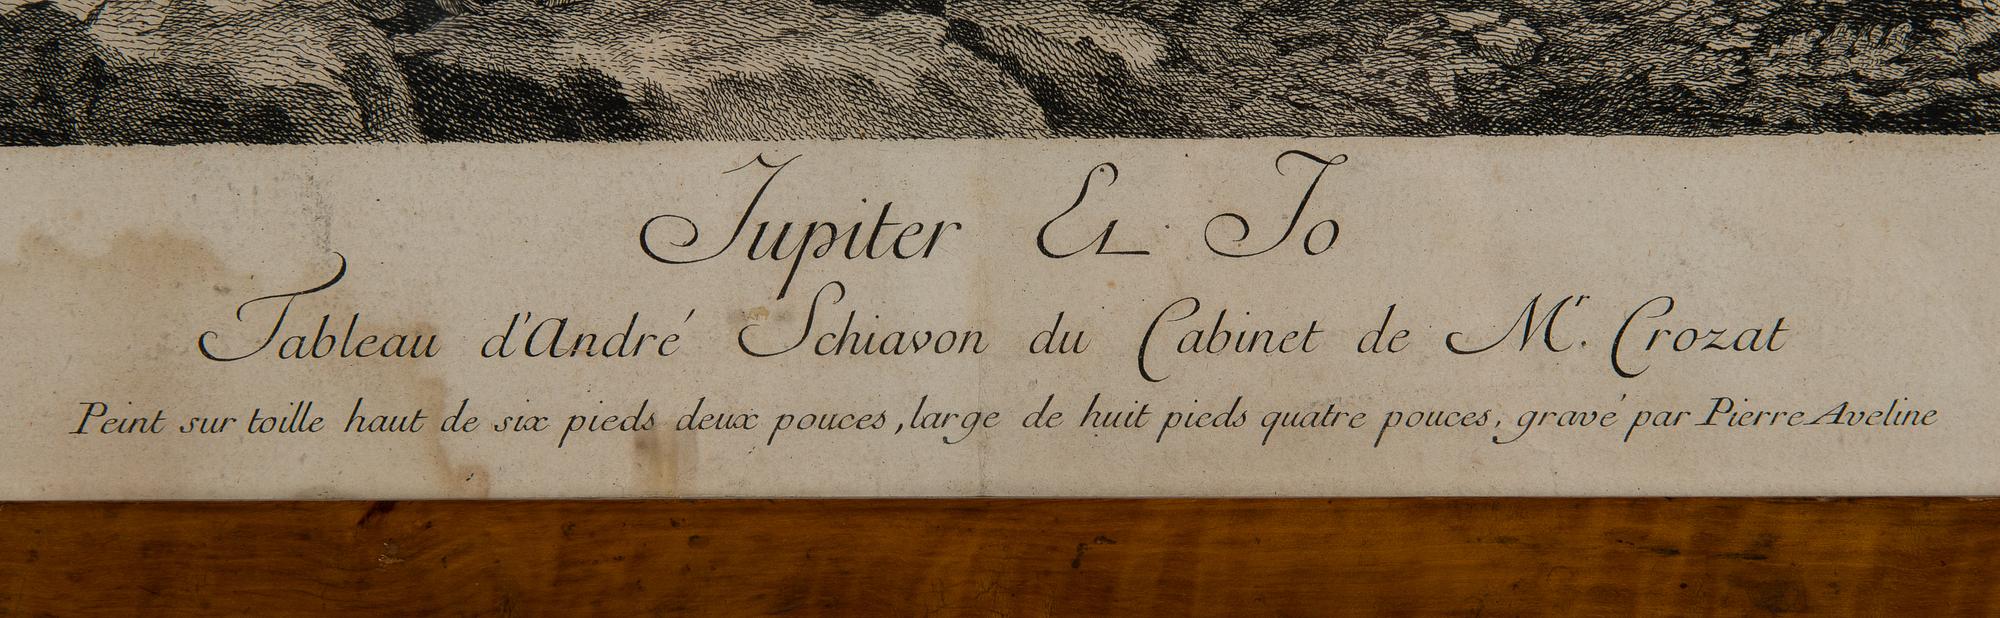 Jupiter Et Jo
Tableau d'André Schiavon du Cabinet de Mr. Crozat
Peint sur toille haut de six pieds deux pouces, large de huit pieds quatre pouces, gravé par Pierre Aveline